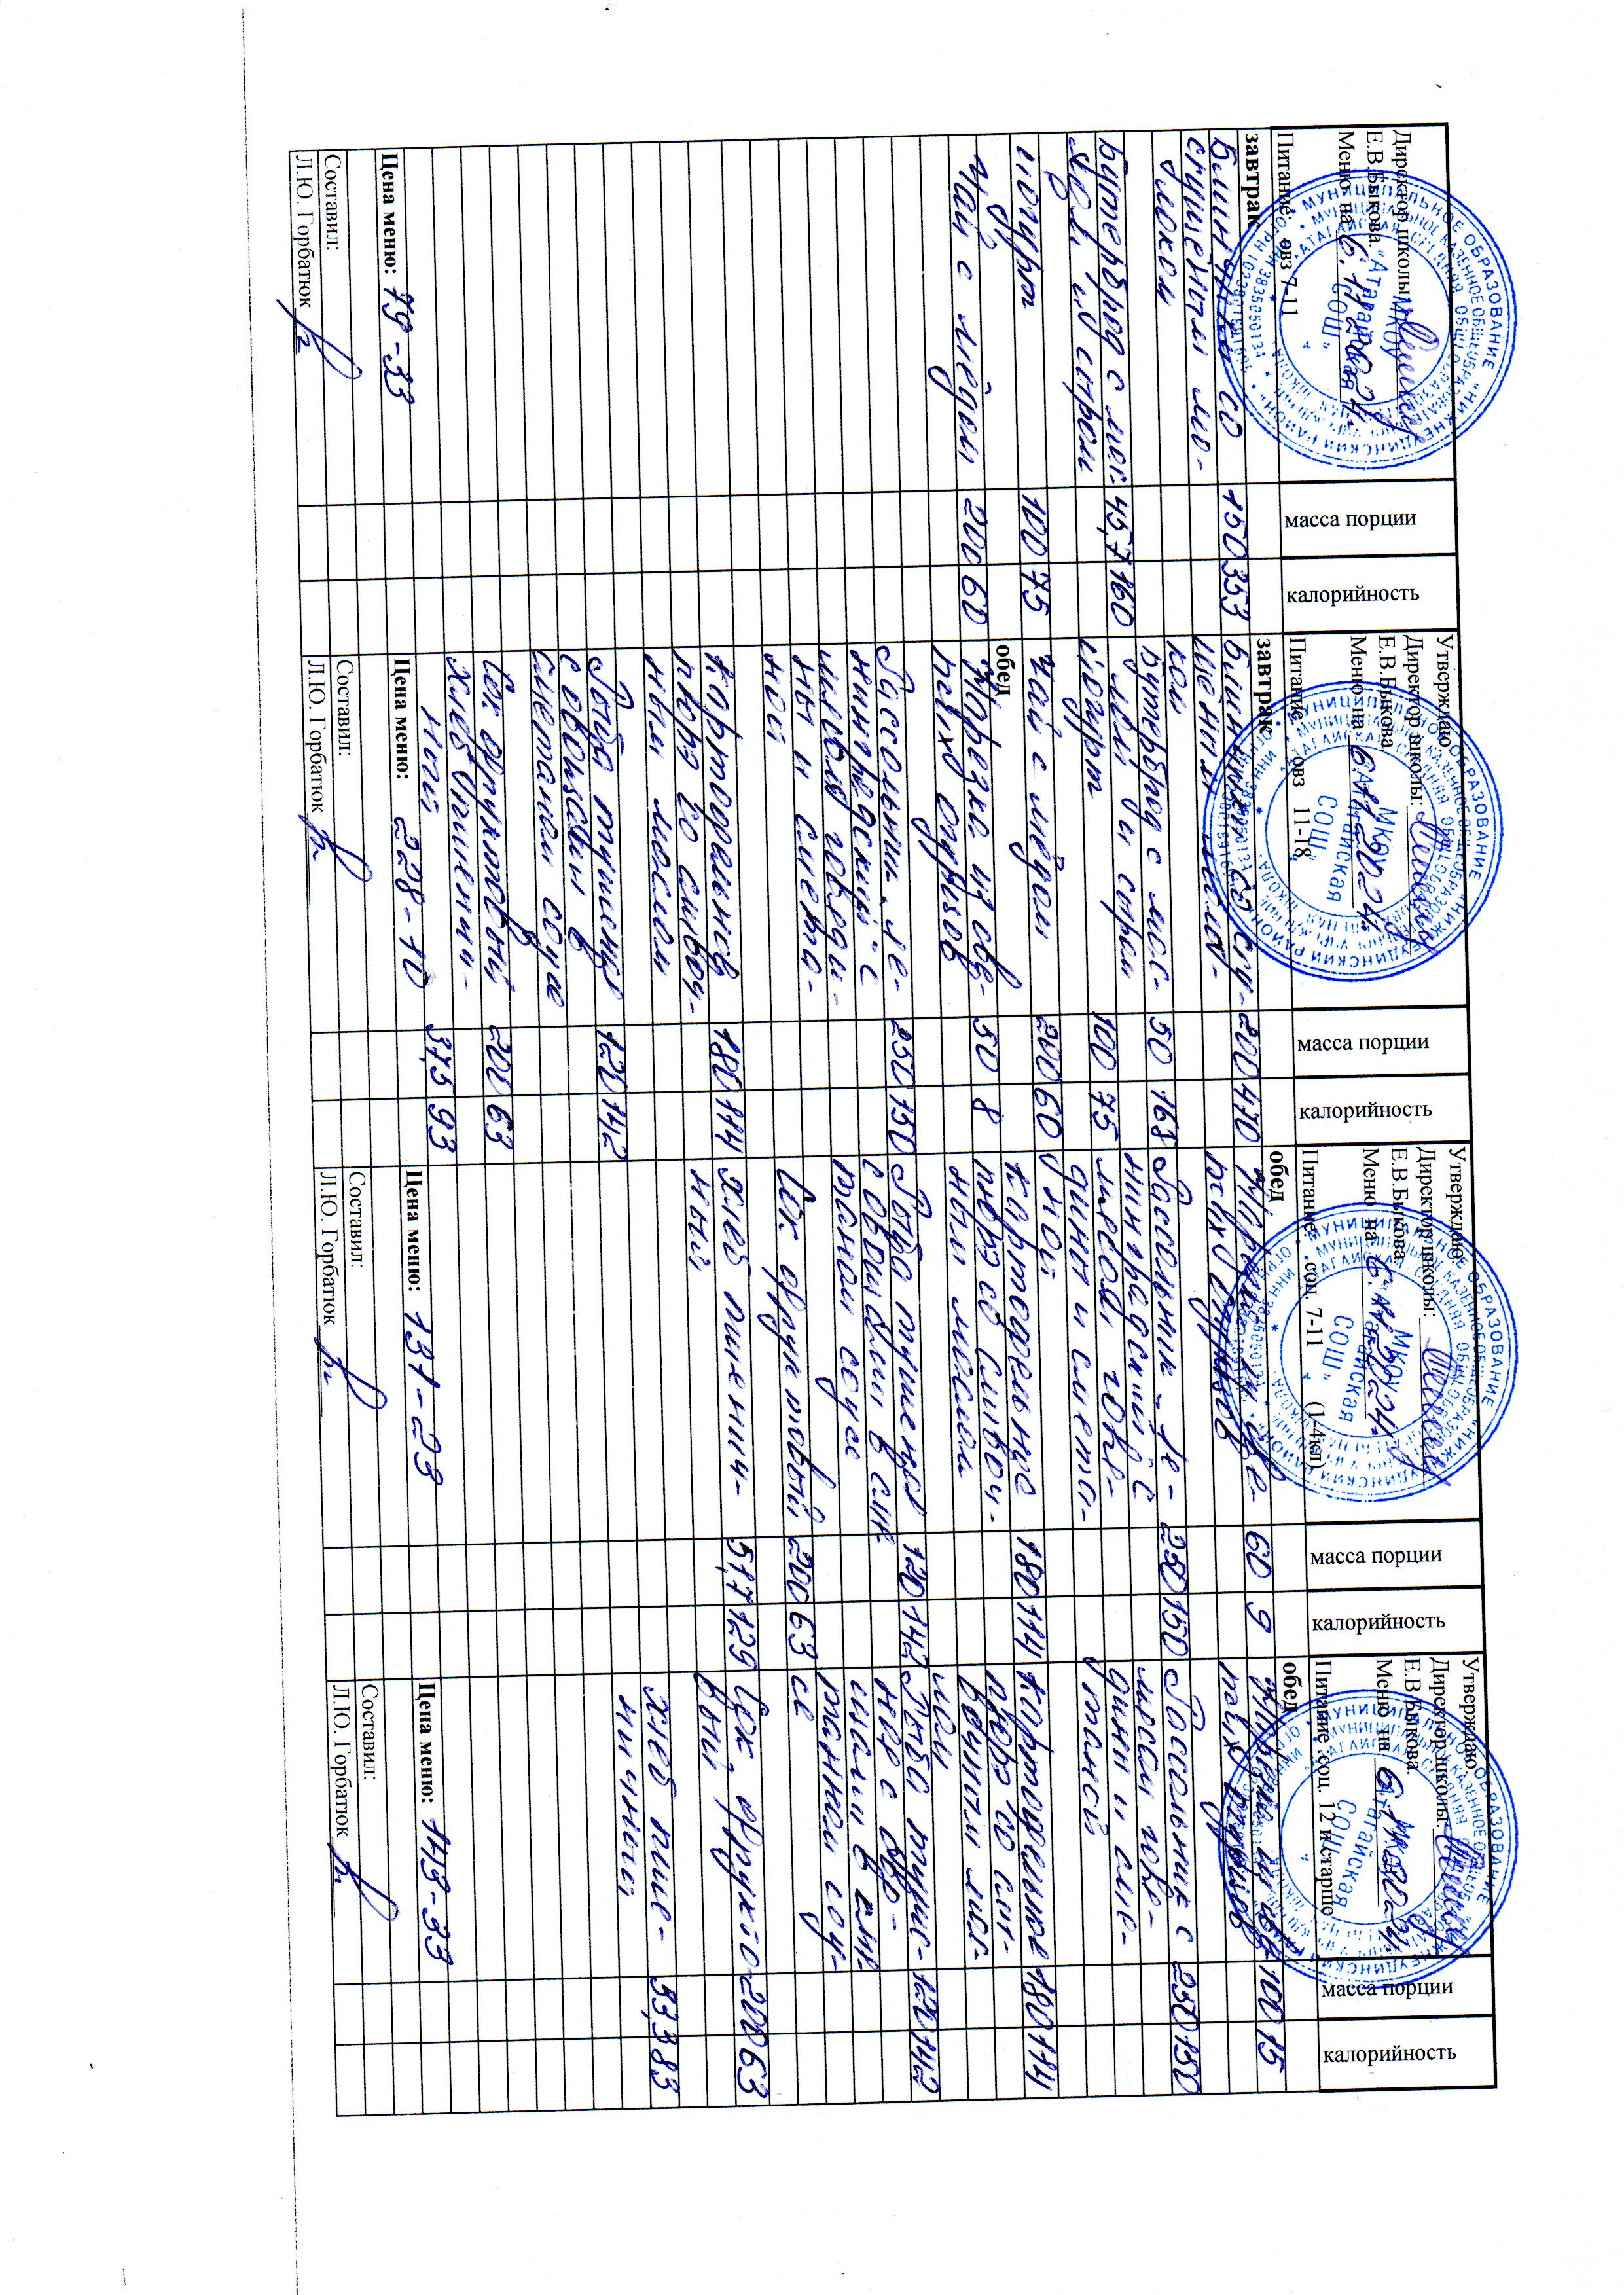 Директор школы:
Е.В.Быкова.
Меню на 6.11.2024.
Питание: овз 7-11
масса порции
калорийность
завтрак
Блинчики со 150 353
сгущённым мо-
локом
Бутерброд с мас- 45,7 160
лом и сыром
йогурт 100 75
Чай с мёдом 200 60
Цена меню: 79-33
Составил:
Л.Ю. Горбатюк
Утверждаю
Директор школы:
Е.В.Быкова
Меню на 6.11.2024.
Питание овз 11-18
масса порции
калорийность
завтрак
Блинчики со сгу- 200 470
щённым моло-
ком
Бутерброд с мас- 50 168
лом и сыром
йогурт 100 75
Чай с мёдом 200 60
обед
Нарезка из све- 50 8
жих огурцов
Рассольник „Ле- 250 150
нинградский" с
мясом говяди-
ны и смета-
ной
Картофельное 180 114
пюре со сливоч-
ным маслом
Рыба тушеная 120 142
с овощами в
сметанном соусе
Сок фруктовый 200 63
Хлеб пшенич- 37,5 93
ный
Цена меню: 228-10
Составил:
Л.Ю. Горбатюк
Утверждаю
Директор школы:
Е.В.Быкова.
Меню на 6.11.2024.
Питание: соц. 7-11 (1-4кл)
масса порции
калорийность
обед
Нарезка из све- 60 9
жих огурцов
Рассольник „Ле- 250 150
нинградский" с
мясом говя-
дины и смета-
ной
Картофельное 180 114
пюре со сливоч-
ным маслом
Рыба тушеная 120 142
с овощами в сме-
танном соусе
Сок фруктовый 200 63
Хлеб пшенич- 51,7 129
ный
Цена меню: 131-23
Составил:
Л.Ю. Горбатюк
Утверждаю
Директор школы:
Е.В.Быкова.
Меню на 6.11.2024.
Питание :соц. 12 и старше
масса порции
калорийность
обед
Нарезка из све- 100 15
жих огурцов
Рассольник с 250 150
мясом говя-
дины и сме-
таной
Картофельное 180 114
пюре со сли-
вочным мас-
лом
Рыба туше- 120 142
ная с ово-
щами в сме-
танном соу-
се
Сок фрукто- 200 63
вый
Хлеб пше- 33,3 83
ничный
Цена меню: 113-33
Составил:
Л.Ю. Горбатюк
МКОУ
"Атагайская
СОШ"